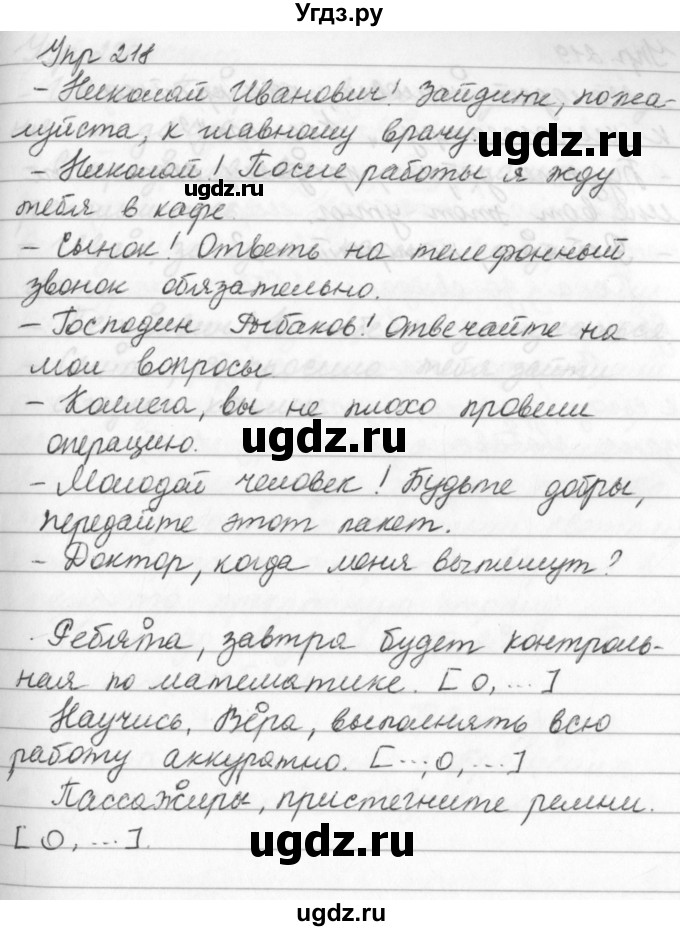 Угдз.ру
Упр 218
- Николай Иванович! Зайдите, пожа-
луйста, к главному врачу.
ugdz.ru
- Николай! После работы я жду
ugdz.ru
тебя в кафе
- Сынок! Ответь на телефонный
звонок обязательно.
- Господин Рыбаков! Отвечайте на
мои вопросы
- Коллега, вы не плохо провели
операцию.
ugdz.ru
- Молодой человек! Будьте добры,
передайте этот пакет.
- Доктор, когда меня выпишут?
Ребята, завтра будет контроль-
ная по математике. [ О, ... ]
Научись, Вера, выполнять всю
работу аккуратно. [..., О, ...]
Пассажиры, пристегните ремни.
[ О, ... ].
ugdz.ru
ugdz.ru